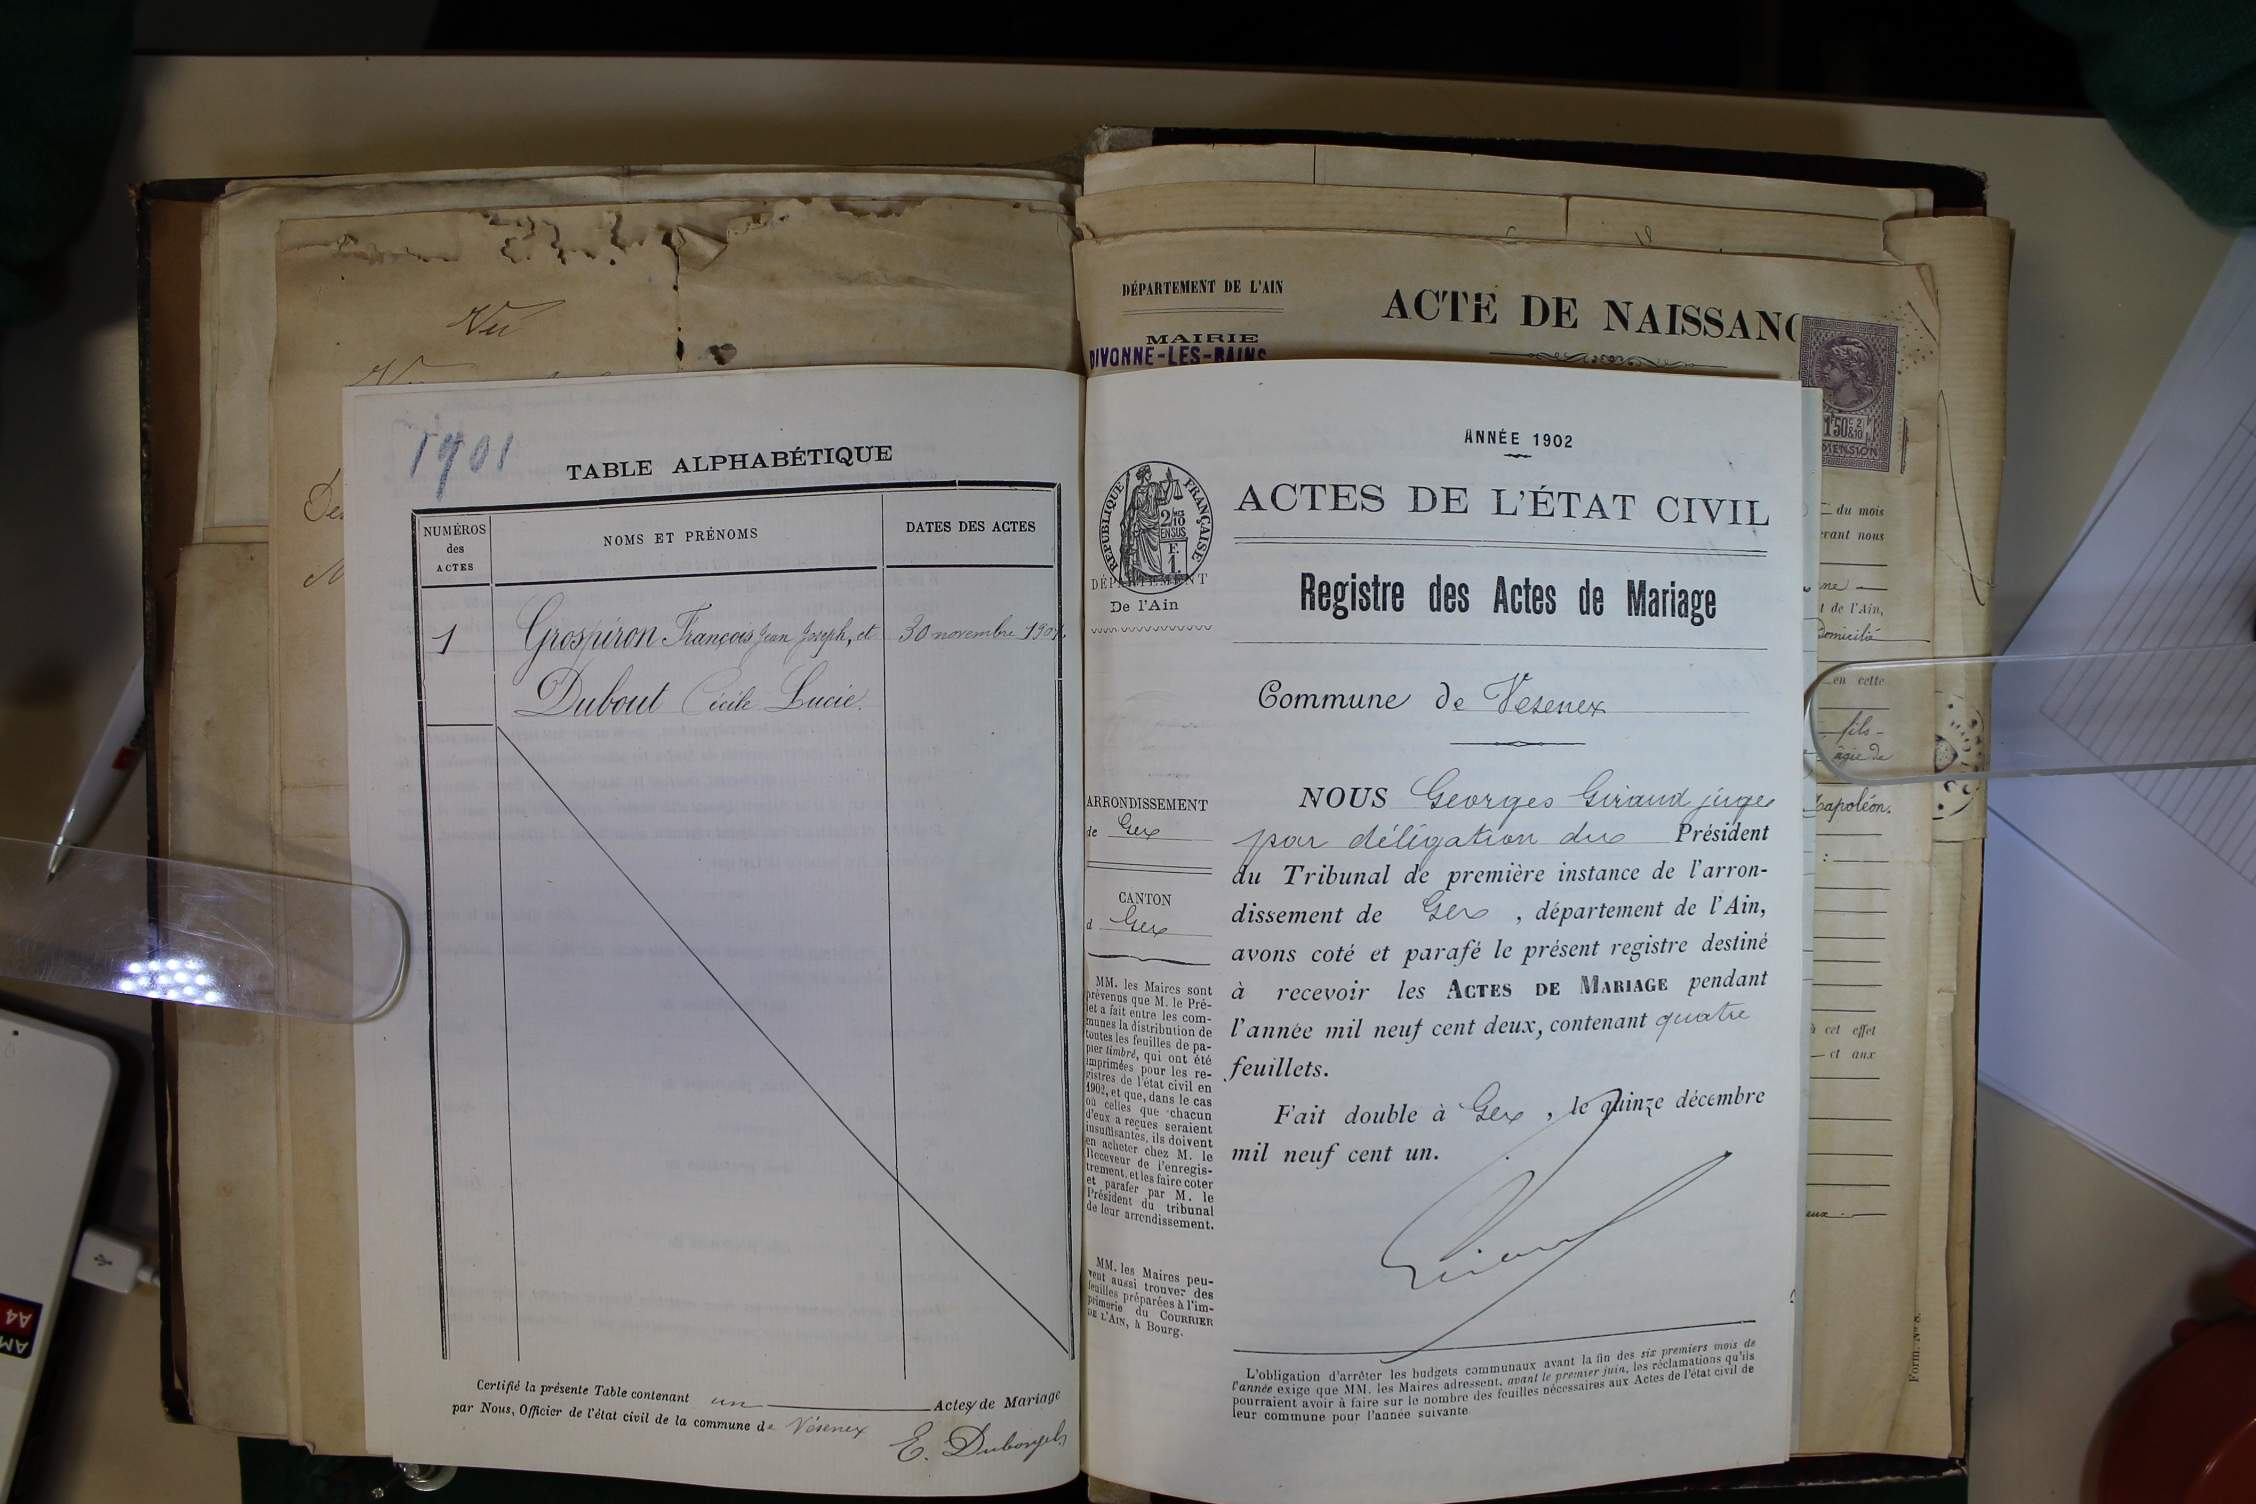 Vu
DÉPARTEMENT DE L'AIN
ACTE DE NAISSANC
MAIRIE
DIVONNE-LES-BAINS
1901
TABLE ALPHABÉTIQUE
NUMÉROS
des
ACTES
NOMS ET PRÉNOMS
DATES DES ACTES
1
Grospiron François Jean Joseph, et
30 novembre 1901.
Dubout Cécile Lucie.
Certifié la présente Table contenant un Actes de Mariage
par Nous, Officier de l'état civil de la commune de Vésenex
ANNÉE 1902
RÉPUBLIQUE FRANÇAISE
2/10
EN SUS
F.
1.
ACTES DE L'ÉTAT CIVIL
DÉPARTEMENT
De l'Ain
Registre des Actes de Mariage
Commune de Vesenex
ARRONDISSEMENT
de Gex
CANTON
d Gex
MM. les Maires sont
prévenus que M. le Pré-
fet a fait entre les com-
munes la distribution de
toutes les feuilles de pa-
pier timbré, qui ont été
imprimées pour les re-
gistres de l'état civil en
1902, et que, dans le cas
où celles que chacun
d'eux a reçues seraient
insuffisantes, ils doivent
en acheter chez M. le
Receveur de l'enregis-
trement, et les faire coter
et parafer par M. le
Président du tribunal
de leur arrondissement.
MM. les Maires peu-
vent aussi trouver des
feuilles préparées à l'im-
primerie du COURRIER
DE L'AIN, à Bourg.
NOUS Georges Giraud juge
par délégation du Président
du Tribunal de première instance de l'arron-
dissement de Gex, département de l'Ain,
avons coté et parafé le présent registre destiné
à recevoir les ACTES DE MARIAGE pendant
l'année mil neuf cent deux, contenant quatre
feuillets.
Fait double à Gex, le quinze décembre
mil neuf cent un.
L'obligation d'arrêter les budgets communaux avant la fin des six premiers mois de
l'année exige que MM. les Maires adressent, avant le premier juin, les réclamations qu'ils
pourraient avoir à faire sur le nombre des feuilles nécessaires aux Actes de l'état civil de
leur commune pour l'année suivante
DIMENSION
du mois
evant nous
t de l'Ain,
Domicilié
en cette
fils
âgée de
Napoléon.
à cet effet
et aux
Form. N° 8.
A4